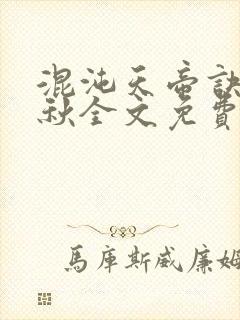 混沌天帝訣
秋全文免費
馬庫斯威廉姆